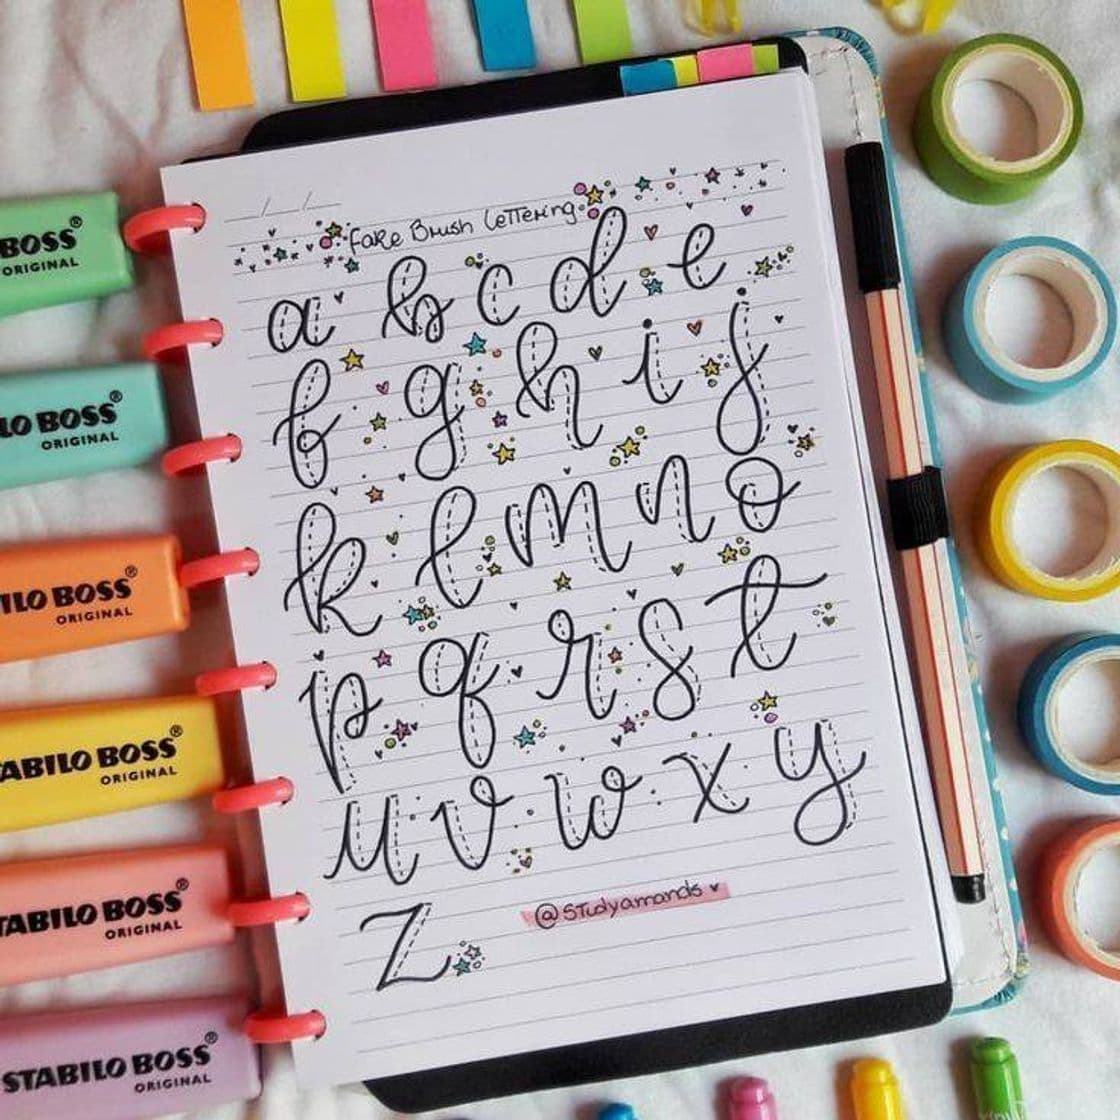 Fake Brush Lettering
a b c d e
f g h i j
k l m n o
p q r s t
u v w x y
z
@studyamands
BOSS®
ORIGINAL
LO BOSS®
ORIGINAL
ILO BOSS®
ORIGINAL
ABILO BOSS®
ORIGINAL
TABILO BOSS®
ORIGINAL
STABILO BOSS®
ORIGINAL